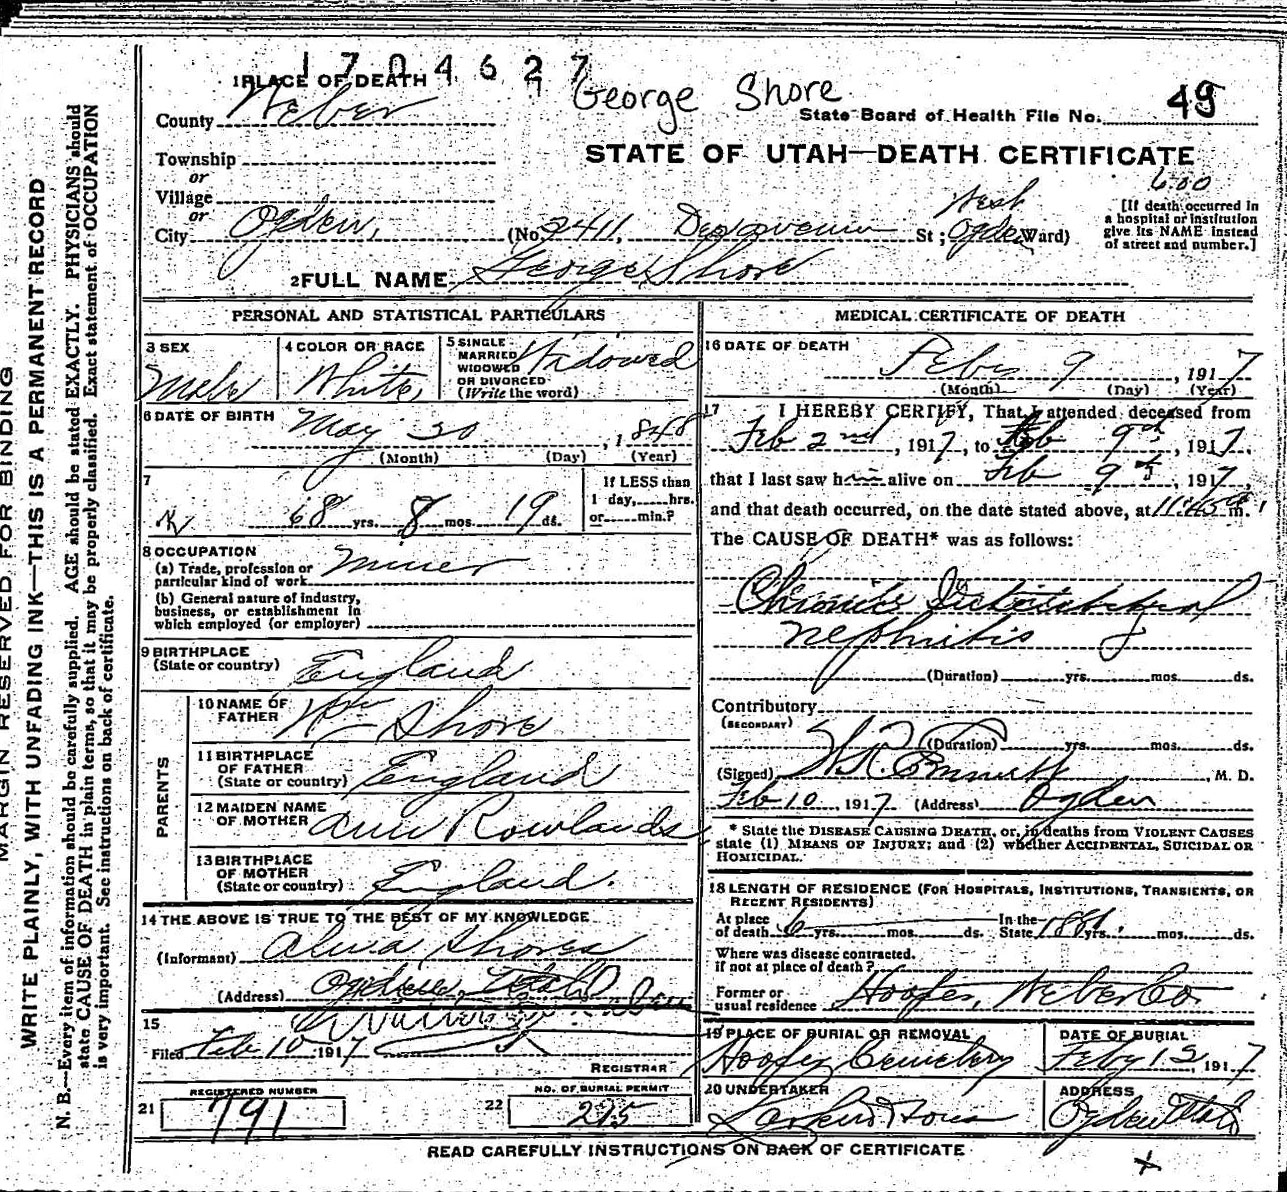 1704627
George Shore
1 PLACE OF DEATH
County Weber
State Board of Health File No. 49
STATE OF UTAH—DEATH CERTIFICATE
Township
or
Village
or
City Ogden, (No. 2411, St; West Ogden Ward)
600
[If death occurred in
a hospital or institution
give its NAME instead
of street and number.]
2 FULL NAME George Shore
PERSONAL AND STATISTICAL PARTICULARS
3 SEX
Male
4 COLOR OR RACE
White
5 SINGLE
MARRIED
WIDOWED
OR DIVORCED
(Write the word)
Widowed
6 DATE OF BIRTH
May 20, 1848
(Month) (Day) (Year)
7
68 yrs. 8 mos. 19 ds.
If LESS than
1 day, hrs.
or min.?
8 OCCUPATION
(a) Trade, profession or
particular kind of work Miner
(b) General nature of industry,
business, or establishment in
which employed (or employer)
9 BIRTHPLACE
(State or country) England
PARENTS
10 NAME OF
FATHER Wm Shore
11 BIRTHPLACE
OF FATHER
(State or country) England
12 MAIDEN NAME
OF MOTHER Ann Rowlands
13 BIRTHPLACE
OF MOTHER
(State or country) England.
14 THE ABOVE IS TRUE TO THE BEST OF MY KNOWLEDGE
(Informant) Shores
(Address) Ogden, Utah
15
Filed Feb 10 1917
REGISTRAR
REGISTERED NUMBER
21 791
NO. OF BURIAL PERMIT
22 215
MEDICAL CERTIFICATE OF DEATH
16 DATE OF DEATH
Feby 9, 1917
(Month) (Day) (Year)
17 I HEREBY CERTIFY, That I attended deceased from
Feb 2nd, 1917, to Feb 9th, 1917,
that I last saw him alive on Feb 9th, 1917,
and that death occurred, on the date stated above, at 11:45 m.
The CAUSE OF DEATH* was as follows:
Chronic Interstitial
nephritis
(Duration) yrs. mos. ds.
Contributory
(SECONDARY)
(Duration) yrs. mos. ds.
(Signed) M. D.
Feb 10, 1917 (Address) Ogden
* State the DISEASE CAUSING DEATH, or, in deaths from VIOLENT CAUSES
state (1) MEANS OF INJURY; and (2) whether ACCIDENTAL, SUICIDAL OR
HOMICIDAL.
18 LENGTH OF RESIDENCE (FOR HOSPITALS, INSTITUTIONS, TRANSIENTS, OR
RECENT RESIDENTS)
At place
of death 6 yrs. mos. ds.
In the
State yrs. mos. ds.
Where was disease contracted,
if not at place of death?
Former or
usual residence Hooper, Weber Co
19 PLACE OF BURIAL OR REMOVAL
Hooper Cemetery
DATE OF BURIAL
Feby 12, 1917
20 UNDERTAKER
Larkin & Sons
ADDRESS
Ogden Utah
READ CAREFULLY INSTRUCTIONS ON BACK OF CERTIFICATE
MARGIN RESERVED FOR BINDING
WRITE PLAINLY, WITH UNFADING INK—THIS IS A PERMANENT RECORD
N. B.—Every item of information should be carefully supplied. AGE should be stated EXACTLY. PHYSICIANS should
state CAUSE OF DEATH in plain terms, so that it may be properly classified. Exact statement of OCCUPATION
is very important. See instructions on back of certificate.